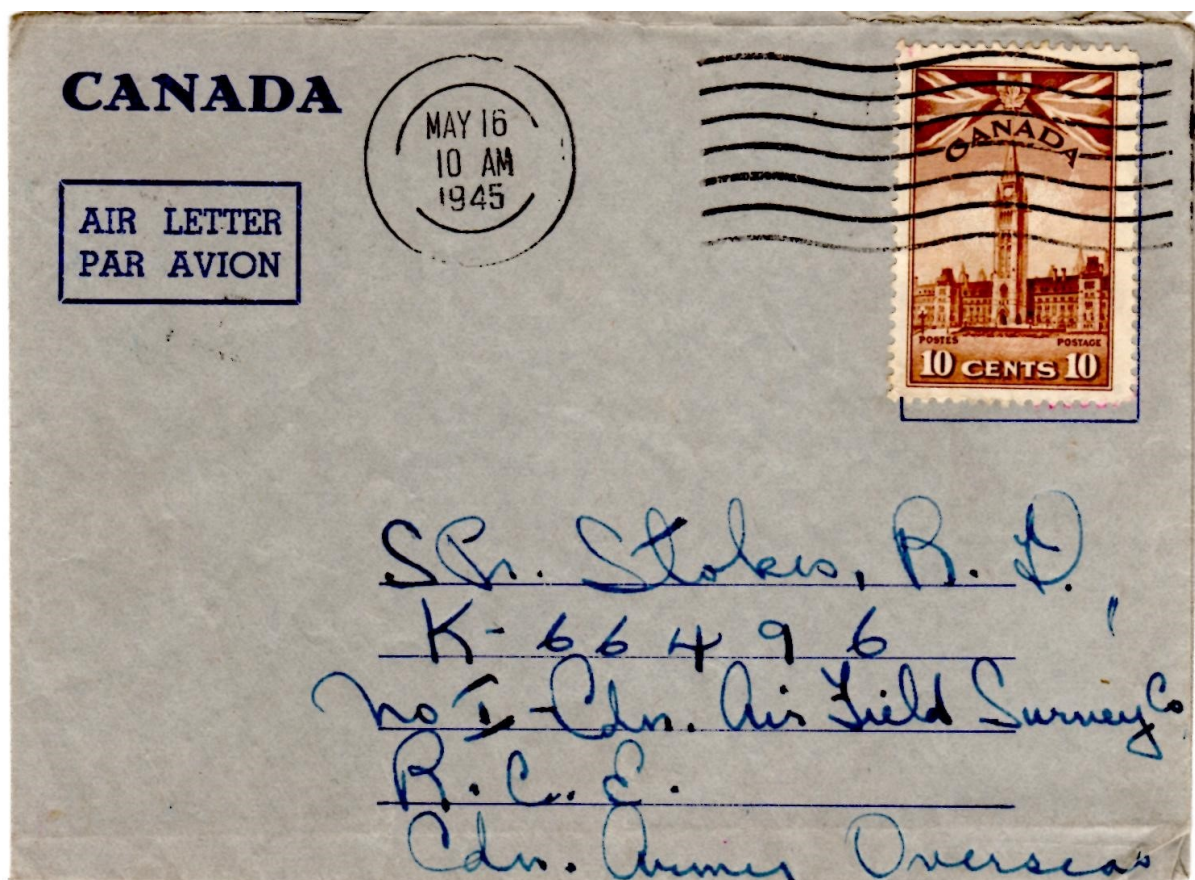 CANADA
AIR LETTER
PAR AVION
MAY 16
10 AM
1945
CANADA
POSTES POSTAGE
10 CENTS 10
Spr. Stokes, R. D.
K-66496
No I - Cdn. Air Field Survey Co
R. C. E.
Cdn. Army Overseas